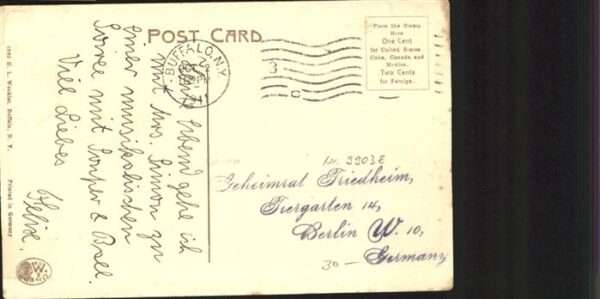 POST CARD.
Place the Stamp
Here
One Cent
for United States
Cuba, Canada and
Mexico.
Two Cents
for Foreign.
BUFFALO, N.Y.
3
Heute Abend gehe ich
mit Mrs. Simon zu
einer musikalischen
Soiree mit Souper & Ball.
Viel Liebes
Felix.
Nr. 9903E
Geheimrat Friedheim,
Tiergarten 14,
Berlin W. 10,
Germany
30 –
Buffalo, N. Y.
Printed in Germany
W.